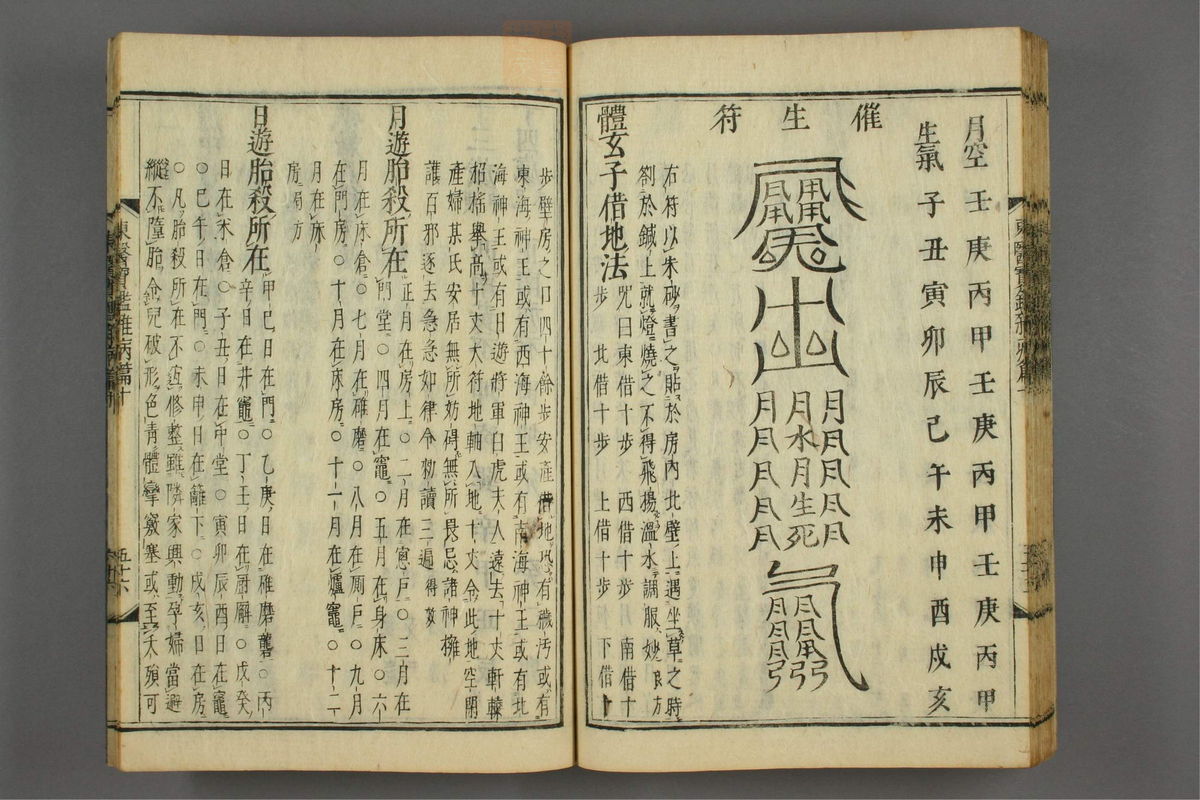 月空 壬 庚 丙 甲 壬 庚 丙 甲 壬 庚 丙 甲
生氣 子 丑 寅 卯 辰 巳 午 未 申 酉 戌 亥
催生符
月水月生死
右符以朱砂書之貼於房內北壁上遇坐草之時
劄於鍼上就燈燒之不得飛揚溫水調服妙良方
體玄子借地法
咒曰東借十步 西借十步 南借十
步 北借十步 上借十步 下借十
步壁房之日四十餘步安產借地恐有穢污或有
東海神王或有西海神王或有南海神王或有北
海神王或有日遊將軍白虎夫人遠去十丈軒轅
招搖舉高十丈天符地軸入地十丈令此地空閑
產婦某氏安居無所妨碍無所畏忌諸神擁
護百邪逐去急急如律令勑讀三遍得效
月遊胎殺所在
正月在房上○二月在窓戶○三月在
門堂○四月在竈○五月在身床○六
月在床倉○七月在碓磨○八月在厠戶○九月
在門房○十月在床房○十一月在爐竈○十二
月在床
房局方
日遊胎殺所在
甲己日在門○乙庚日在碓磨○丙
辛日在井竈○丁壬日在厨廨○戊癸
日在米倉○子丑日在中堂○寅卯辰酉日在竈
○巳午日在門○未申日在籬下○戌亥日在房
○凡胎殺所在不宜修整雖隣家興動孕婦當避
縱不墮胎令兒破形色青體攣竅塞或至夭殞可
東醫寶鑑雜病篇十
五十六